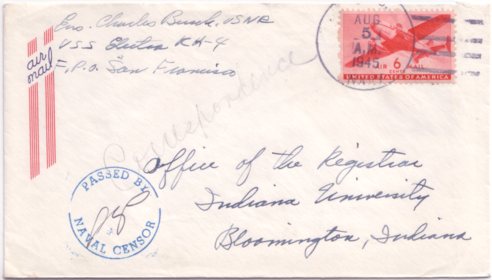 Ens. Charles Busek, USNR
USS Electra KA-4
F.P.O. San Francisco
air
mail
AUG
5
A.M.
1945
NAVY
AIR 6 MAIL
CENTS
UNITED STATES OF AMERICA
Correspondence
PASSED BY
NAVAL CENSOR
Office of the Registrar
Indiana University
Bloomington, Indiana